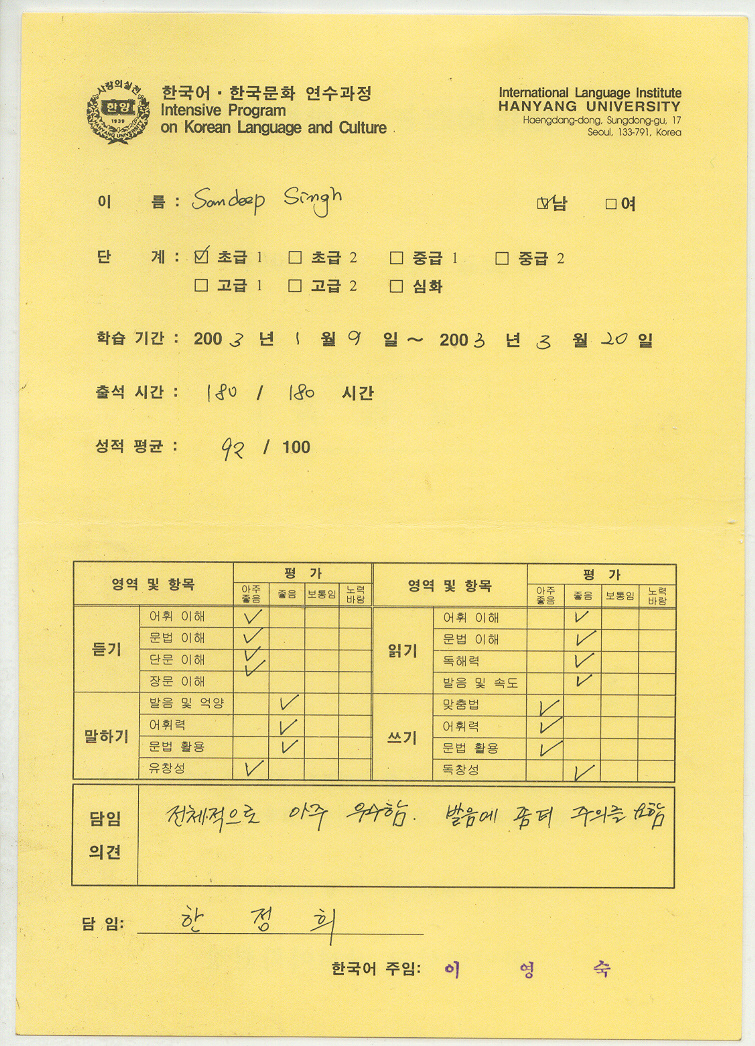 사랑의실천
한양
1939
HANYANG UNIVERSITY
한국어 · 한국문화 연수과정
Intensive Program
on Korean Language and Culture
International Language Institute
HANYANG UNIVERSITY
Haengdang-dong, Sungdong-gu, 17
Seoul, 133-791, Korea
이 름 : Sandeep Singh ☑남 □여
단 계 : ☑ 초급 1 □ 초급 2 □ 중급 1 □ 중급 2
□ 고급 1 □ 고급 2 □ 심화
학습 기간 : 2003 년 1 월 9 일 ~ 2003 년 3 월 20 일
출석 시간 : 180 / 180 시간
성적 평균 : 92 / 100
영역 및 항목 평 가 영역 및 항목 평 가
아주 좋음 좋음 보통임 노력 바람 아주 좋음 좋음 보통임 노력 바람
듣기 어휘 이해 ✓ 읽기 어휘 이해 ✓
문법 이해 ✓ 문법 이해 ✓
단문 이해 ✓ 독해력 ✓
장문 이해 ✓ 발음 및 속도 ✓
말하기 발음 및 억양 ✓ 쓰기 맞춤법 ✓
어휘력 ✓ 어휘력 ✓
문법 활용 ✓ 문법 활용 ✓
유창성 ✓ 독창성 ✓
담임 의견 전체적으로 아주 우수함. 발음에 좀더 주의를 요함
담 임: 한 정 희
한국어 주임: 이 영 숙